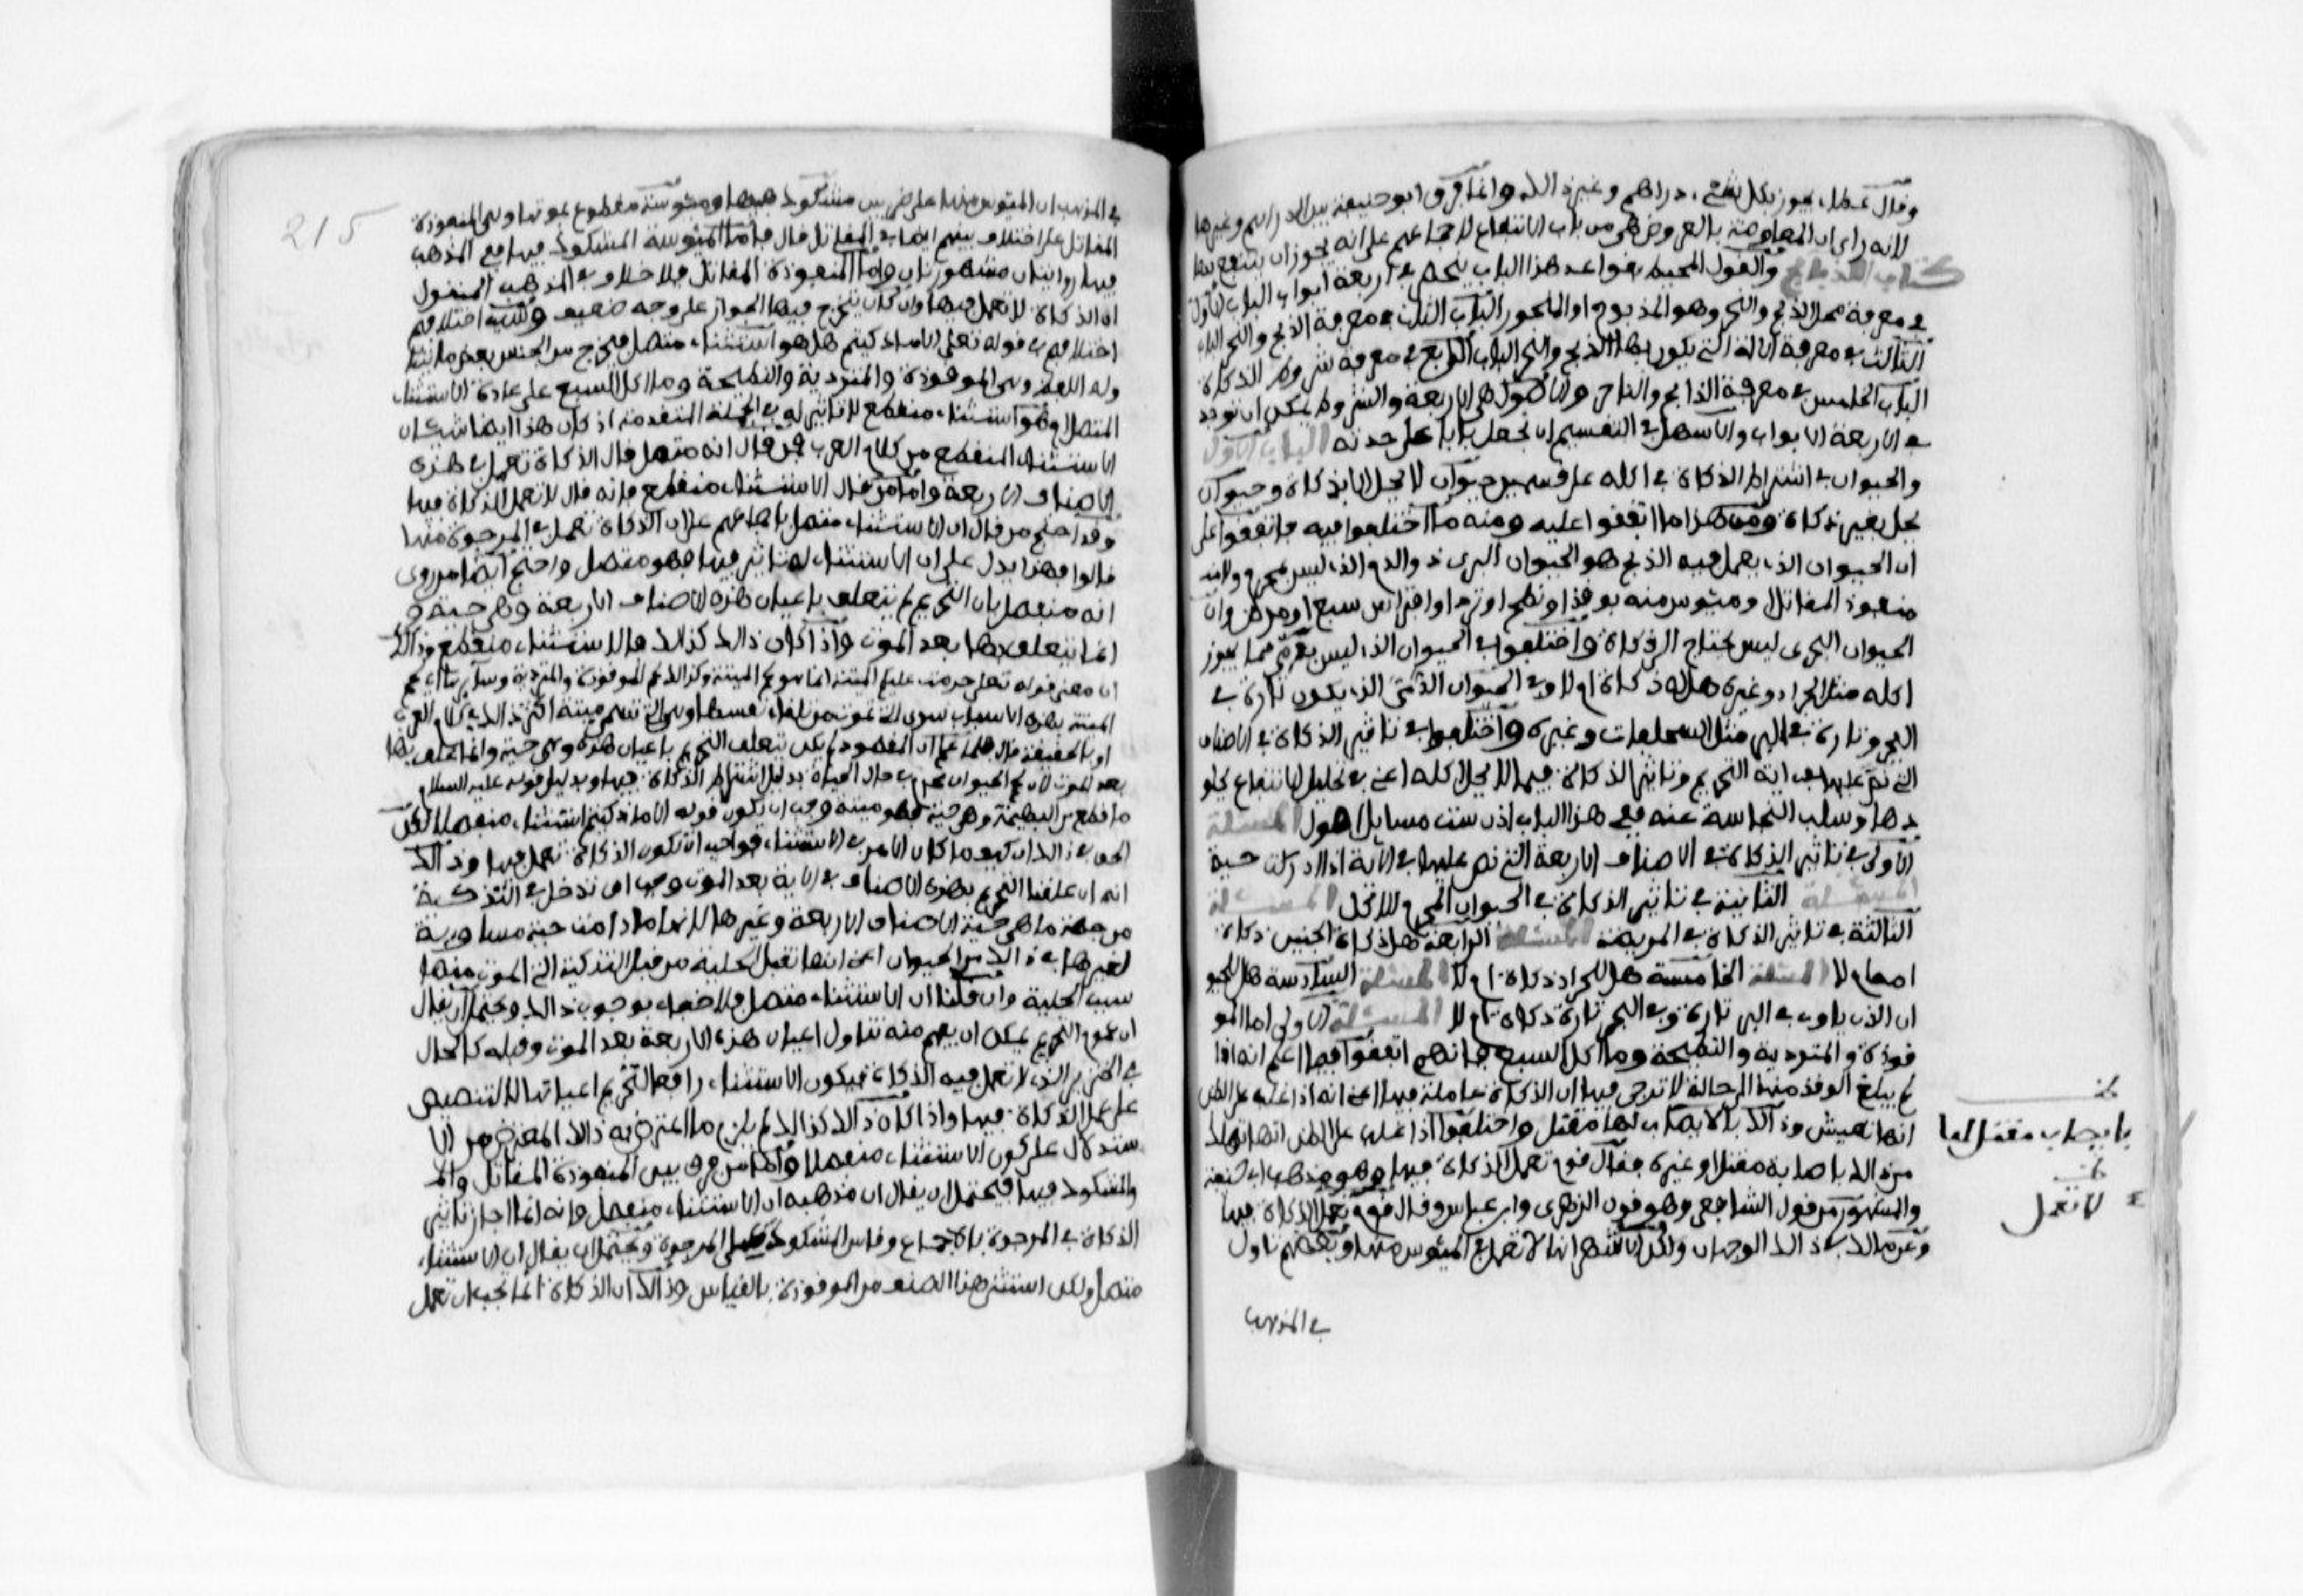 وقال عطاء يجوز بكل شيء دراهم وغير ذالك وانما فرق ابو حنيفة بين الدراهم وغيرها
لانه راى ان المعاوضة بالعروض هي من باب الانتفاع لاجماعهم على انه يجوز ان ينتفع بها
كتاب الذبائح والقول المحيط بقواعد هذا الباب ينحصر في اربعة ابواب الباب الاول
في معرفة محل الذبح والنحر وهو المذبوح او المنحور الباب الثاني في معرفة الذبح والنحر الباب
الثالث في معرفة الالة التي يكون بها الذبح والنحر الباب الرابع في معرفة شروط الذكاة
الباب الخامس في معرفة الذابح والناحر والاصول هي الاربعة والشروط يمكن ان توجد
في الاربعة الابواب والاسهل في التقسيم ان نجعل بابا على حدته الباب الاول
والحيوان في اشتراط الذكاة في اكله على قسمين حيوان لا يحل الا بذكاة وحيوان
يحل بغير ذكاة ومن هذا ما اتفقوا عليه ومنه ما اختلفوا فيه فاتفقوا على
ان الحيوان الذي يعمل فيه الذبح هو الحيوان البرى ذو الدم الذي ليس بمحرم ولا
منفوذ المقاتل ولا ميئوس منه بوقذ او نطح او ترد او افتراس سبع او مرض وان
الحيوان البحرى ليس يحتاج الى ذكاة واختلفوا في الحيوان الذي ليس بدم مما يجوز
اكله مثل الجراد وغيره هل له ذكاة ام لا وفي الحيوان الذي يكون تارة في
البحر وتارة في البر مثل السلحفات وغيره واختلفوا في تاثير الذكاة في الاصناف
التي نص عليها في اية التحريم وتاثير الذكاة فيما لا يحل اكله اعني في تحليل الانتفاع بجلو
دها وسلب النجاسة عنه ففي هذا الباب اذن ست مسايل اصول المسئلة
الاولى في تاثير الذكاة في الاصناف الاربعة التي نص عليها في الاية اذا ادركت حية
المسئلة الثانية في تاثير الذكاة في الحيوان المحرم الاكل المسئلة
الثالثة في تاثير الذكاة في المريضة المسئلة الرابعة هل ذكاة الجنين ذكاة
امه ام لا المسئلة الخامسة هل للجراد ذكاة ام لا المسئلة السادسة هل للحيو
ان الذي ياوى في البر تارة وفي البحر تارة ذكاة ام لا المسئلة الاولى اما المو
قوذة والمتردية والنطيحة وما اكل السبع فانهم اتفقوا فيما اعلم انه اذا
لم يبلغ الوقذ منها الى حالة لا ترجى فيها ان الذكاة عاملة فيها اعني انه اذا غلب على الظن
انها تعيش وذالك بالا يصاب لها مقتل واختلفوا اذا غلب على الظن انها تهلك
من ذالك باصابة مقتل او غيره فقال قوم تعمل الذكاة فيها وهو مذهب ابي حنيفة
والمشهور من قول الشافعي وهو قول الزهرى وابن عباس وقال قوم لا تعمل الذكاة فيها
وعن مالك في ذالك الوجهان ولكن الاشهر انها لا تعمل في الميئوس منها وبعضهم تاول
في المذهب
بان يصاب مقتل لها
لا تعمل
215
في المذهب ان الميئوس منها على ضربين مشكوك فيها وميئوسة مقطوع بموتها وهي المنفوذة
المقاتل على اختلاف بينهم ايضا في المقاتل قال فاما الميئوسة المشكوك فيها ففي المذهب
فيها روايتان مشهورتان واما المنفوذة المقاتل فلا خلاف في المذهب المنقول
ان الذكاة لا تعمل فيها وان كان يتخرج فيها الجواز على وجه ضعيف وسبب اختلافهم
اختلافهم في قوله تعلى الا ما ذكيتم هل هو استثناء متصل فيخرج من الجنس بعض ما يتنا
وله اللفظ وهي الموقوذة والمتردية والنطيحة وما اكل السبع على عادة الاستثناء
المتصل او هو استثناء منقطع لا تاثير له في الجملة المتقدمة اذ كان هذا ايضا شان
الاستثناء المنقطع من كلام العرب فمن قال انه متصل قال الذكاة تعمل في هذه
الاصناف الاربعة واما من قال الاستثناء منقطع فانه قال لا تعمل الذكاة فيها
وقد احتج من قال ان الاستثناء متصل باجماعهم على ان الذكاة تعمل في المرجوة منها
قالوا فهذا يدل على ان الاستثناء له تاثير فيها فهو متصل واحتج ايضا من روى
انه منفصل بان التحريم لم يتعلق باعيان هذه الاصناف الاربعة وهي حية و
انما يتعلق بها بعد الموت واذا كان ذالك كذالك فالاستثناء منقطع وذالك
ان معنى قوله تعلى حرمت عليكم الميتة انما هو لحم الميتة وكذالك لحم الموقوذة والمتردية وساير ها اي لحم
الميتة بهذه الاسباب سوى التي تموت من تلقاء نفسها وهي التي تسمى ميتة اكثر ذالك في كلام العرب
او بالحقيقة قال فلما علم ان المقصود لم يكن تعليق التحريم باعيان هذه وهي حية وانما علق بها
بعد الموت لان لحم الحيوان محرم في حال الحياة بدليل اشتراط الذكاة فيها وبدليل قوله عليه السلام
ما قطع من البهيمة وهي حية فهو ميتة وجب ان يكون قوله الا ما ذكيتم استثناء منفصلا لكن
الحق في ذالك ان كيف ما كان الامر في الاستثناء فواجب ان تكون الذكاة تعمل فيها وذالك
انه ان علقنا التحريم بهذه الاصناف في الاية بعد الموت وجب ان تدخل في التذكية
من جهة ما هي حية الاصناف الاربعة وغيرها لانها ما دامت حية مساوية
لغيرها في ذالك من الحيوان اعني انها تقبل الحلية من قبل التذكية التي الموت منها
سبب الحلية وان قلنا ان الاستثناء متصل فلا خفاء بوجوب ذالك ويحتمل ان يقال
ان عموم التحريم يمكن ان يفهم منه تناول اعيان هذه الاربعة بعد الموت وقبله كالحال
في الخنزير الذي لا تعمل فيه الذكاة فيكون الاستثناء رافعا لتحريم اعيانها لا بالتنصيص
على عمل الذكاة فيها واذا كان ذالك كذالك لم يلزم ما اعترض به ذالك المعترض من الا
ستدلال على كون الاستثناء منفصلا واما من فرق بين المنفوذة المقاتل والم
والمشكوك فيها فيحتمل ان يقال ان مذهبه ان الاستثناء منفصل وانه انما اجاز تاثير
الذكاة في المرجوة بالاجماع وقاس المشكوك على المرجوة ويحتمل ان يقال ان الاستثناء
متصل ولكن استثنى هذا الصنف من الموقوذة بالقياس وذالك ان الذكاة انما يجب ان تعمل